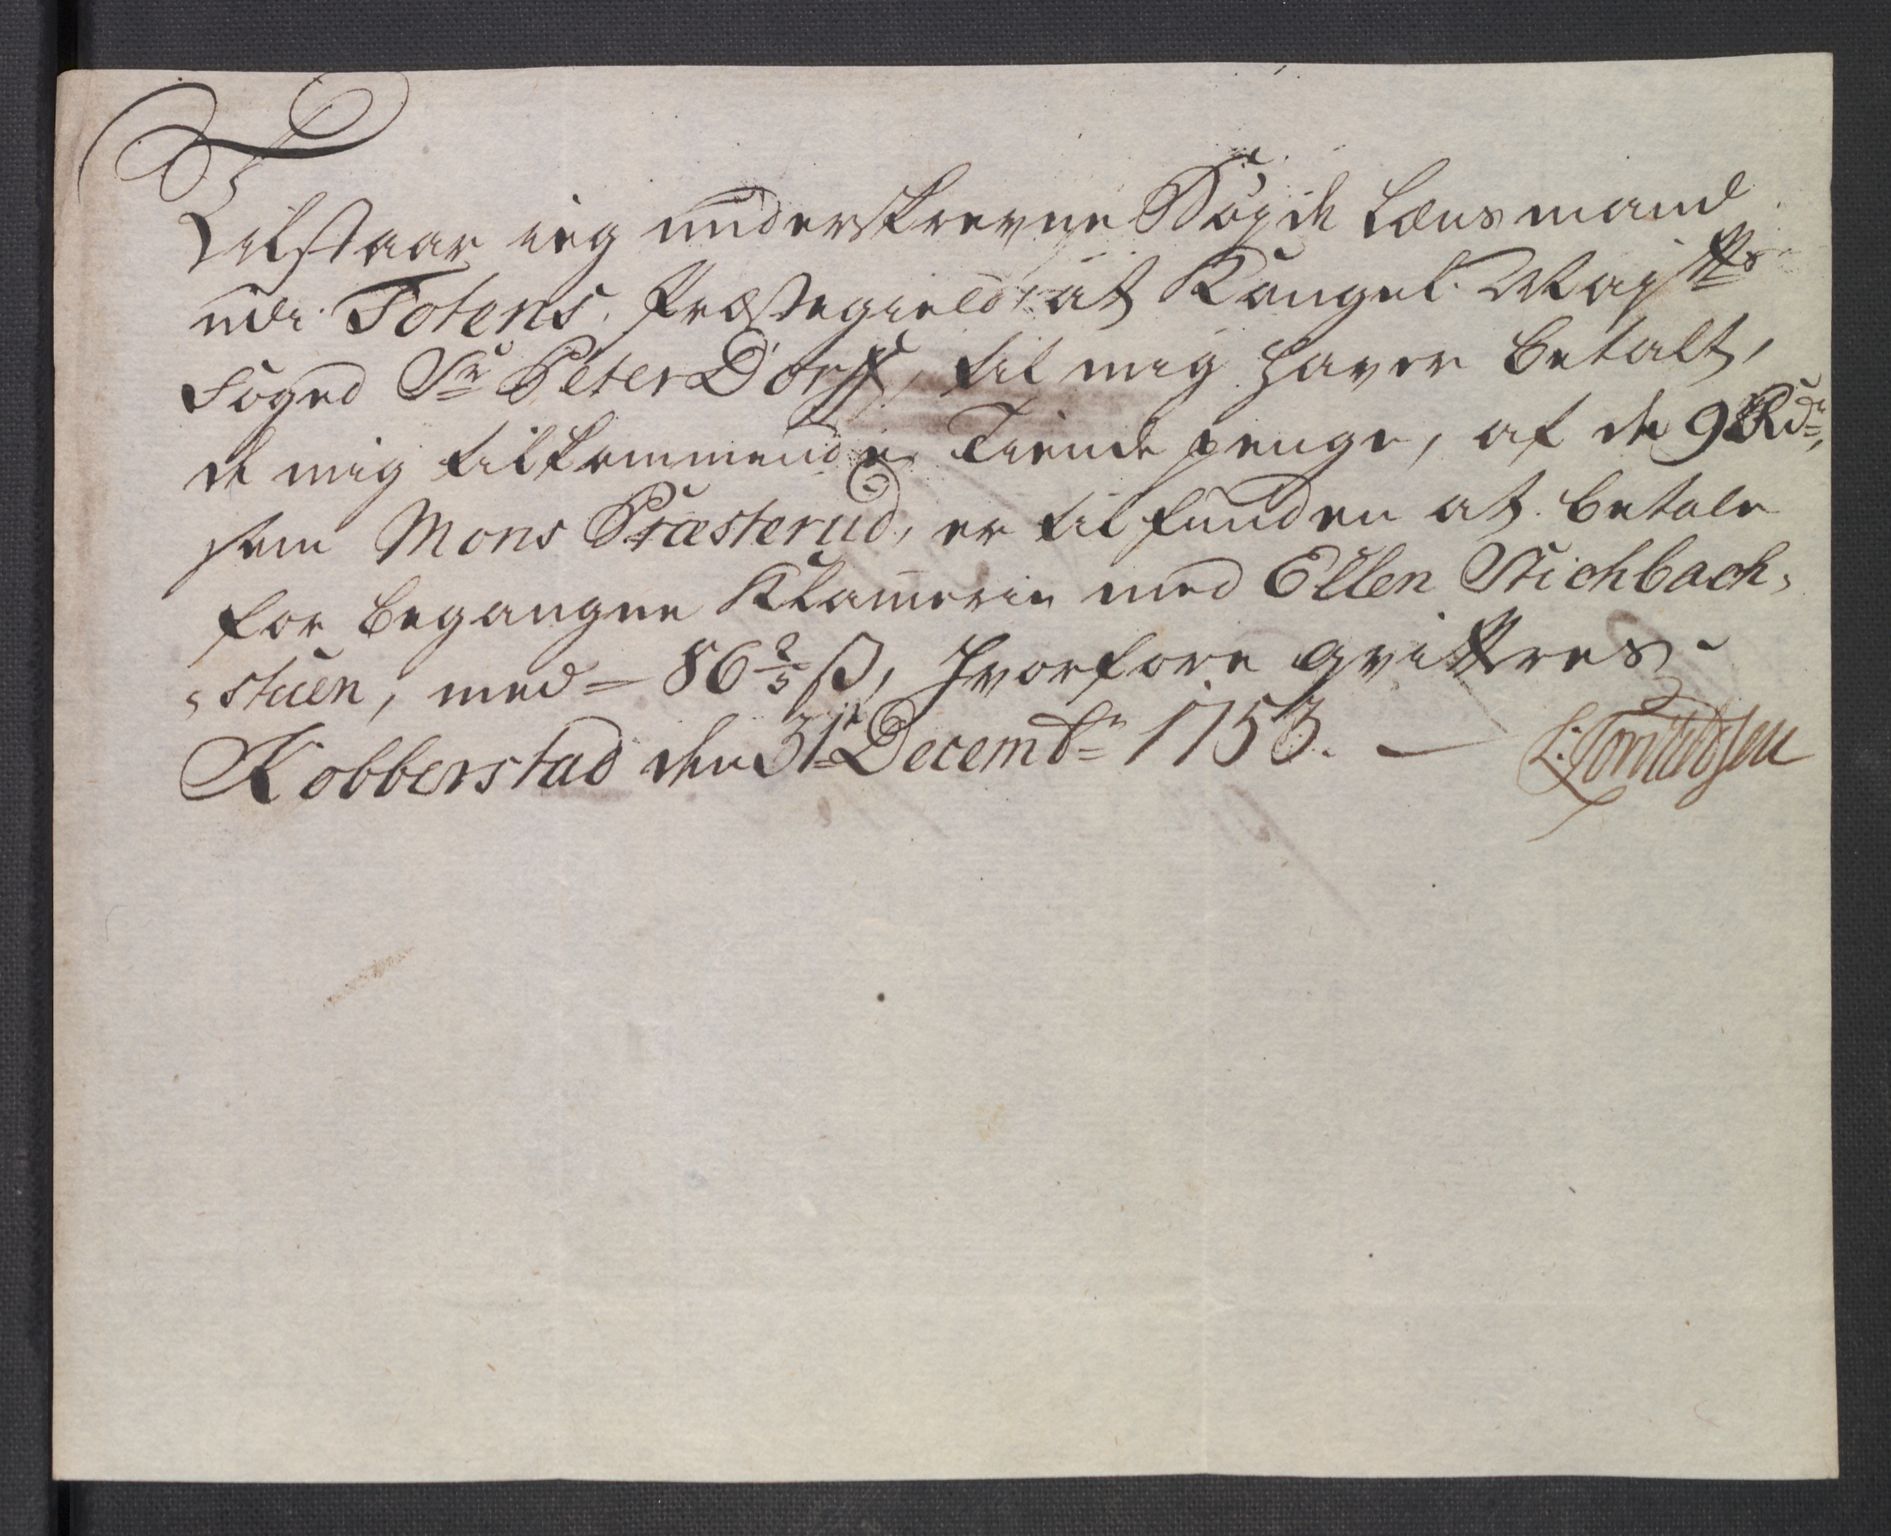 Tilstaar ieg underskrevne Bøxde Lænsmand
udi Totens Præstegield, at Kongel. Mayₛₜₜˢ
Foged Sr Peter Dorff, til mig haver betalt,
de mig tilkommende Tiende penge, af de 9 Rdr,
som Mons Præsterud, er tilfunden at betale
for begangne Klammerie med Ellen Stichbach-
stuen, med = 86 2/5 ß, Hvorfore qvitteres.
Kobberstad den 31te Decembr 1753. — L: Tommesen